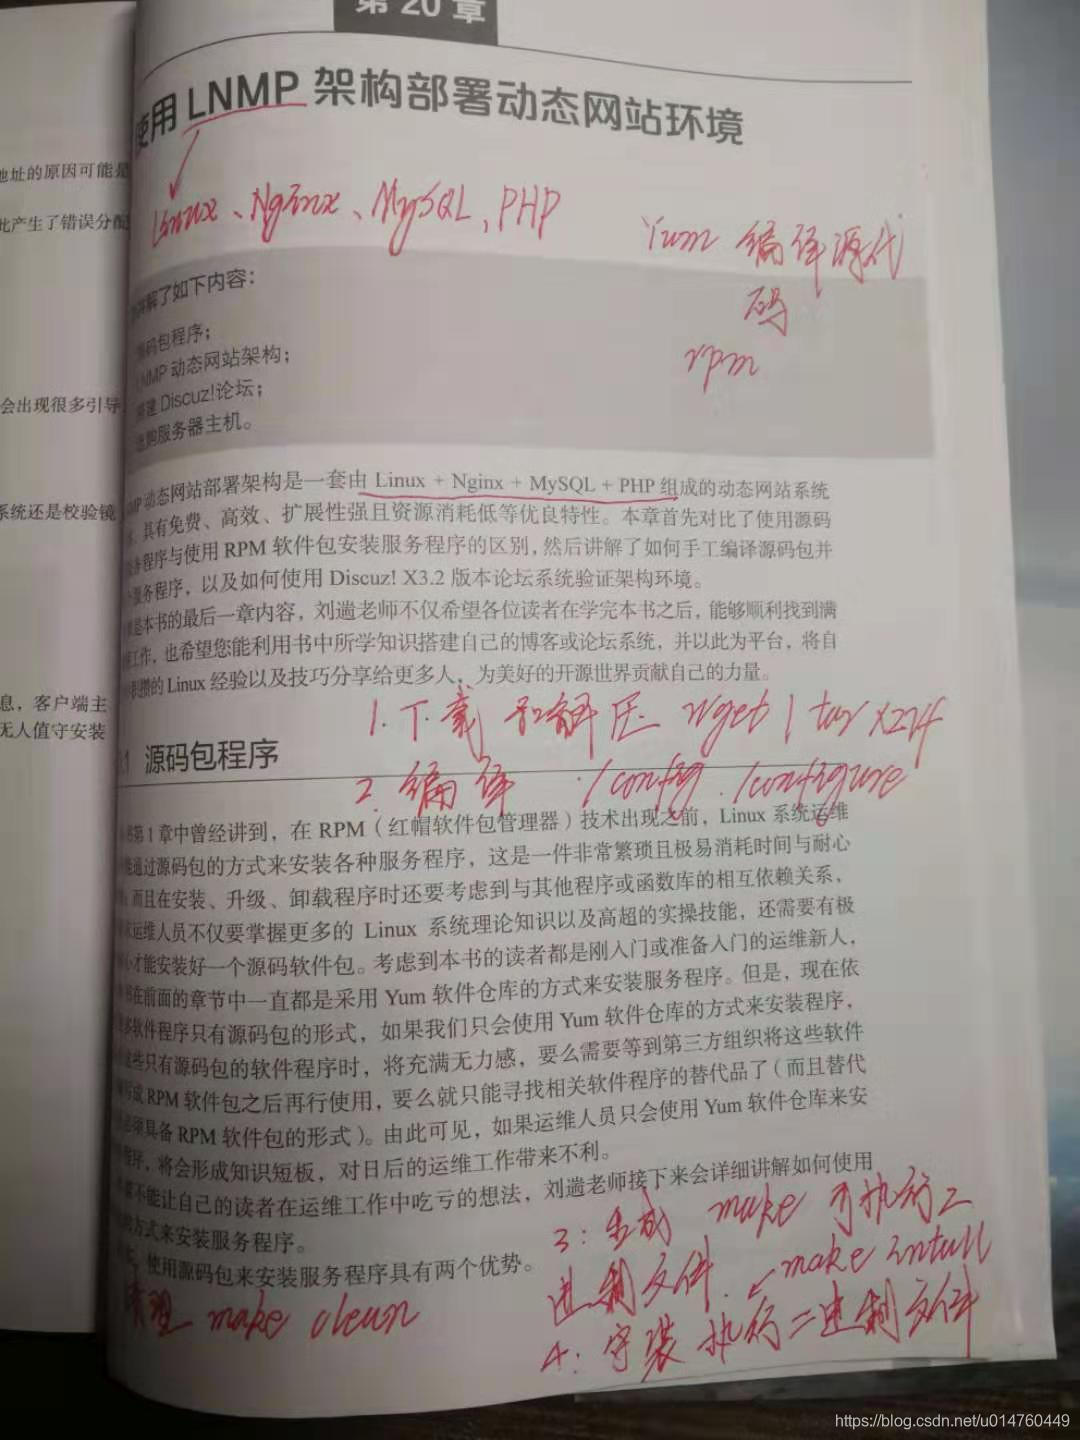 第 20 章
使用 LNMP 架构部署动态网站环境
Linux、Nginx、MySQL、PHP
Yum 编译源代
码
rpm
地址的原因可能是
此产生了错误分配
会出现很多引导
系统还是校验镜
息，客户端主
无人值守安装
讲解了如下内容：
源码包程序；
LNMP 动态网站架构；
搭建 Discuz!论坛；
选购服务器主机。
动态网站部署架构是一套由 Linux + Nginx + MySQL + PHP 组成的动态网站系统
具有免费、高效、扩展性强且资源消耗低等优良特性。本章首先对比了使用源码
程序与使用 RPM 软件包安装服务程序的区别，然后讲解了如何手工编译源码包并
服务程序，以及如何使用 Discuz! X3.2 版本论坛系统验证架构环境。
是本书的最后一章内容，刘遄老师不仅希望各位读者在学完本书之后，能够顺利找到满
工作，也希望您能利用书中所学知识搭建自己的博客或论坛系统，并以此为平台，将自
的 Linux 经验以及技巧分享给更多人，为美好的开源世界贡献自己的力量。
1. 下载和解压 wget | tar xzvf
.1 源码包程序
2. 编译 ./config ./configure
第 1 章中曾经讲到，在 RPM（红帽软件包管理器）技术出现之前，Linux 系统运维
通过源码包的方式来安装各种服务程序，这是一件非常繁琐且极易消耗时间与耐心
而且在安装、升级、卸载程序时还要考虑到与其他程序或函数库的相互依赖关系，
运维人员不仅要掌握更多的 Linux 系统理论知识以及高超的实操技能，还需要有极
才能安装好一个源码软件包。考虑到本书的读者都是刚入门或准备入门的运维新人，
在前面的章节中一直都是采用 Yum 软件仓库的方式来安装服务程序。但是，现在依
多软件程序只有源码包的形式，如果我们只会使用 Yum 软件仓库的方式来安装程序，
这些只有源码包的软件程序时，将充满无力感，要么需要等到第三方组织将这些软件
写成 RPM 软件包之后再行使用，要么就只能寻找相关软件程序的替代品了（而且替代
必须具备 RPM 软件包的形式）。由此可见，如果运维人员只会使用 Yum 软件仓库来安
程序，将会形成知识短板，对日后的运维工作带来不利。
不能让自己的读者在运维工作中吃亏的想法，刘遄老师接下来会详细讲解如何使用
方式来安装服务程序。
使用源码包来安装服务程序具有两个优势。
3：生成 make 可执行二
进制文件. make intall
4：安装 执行二进制文件
清理 make clean
https://blog.csdn.net/u014760449